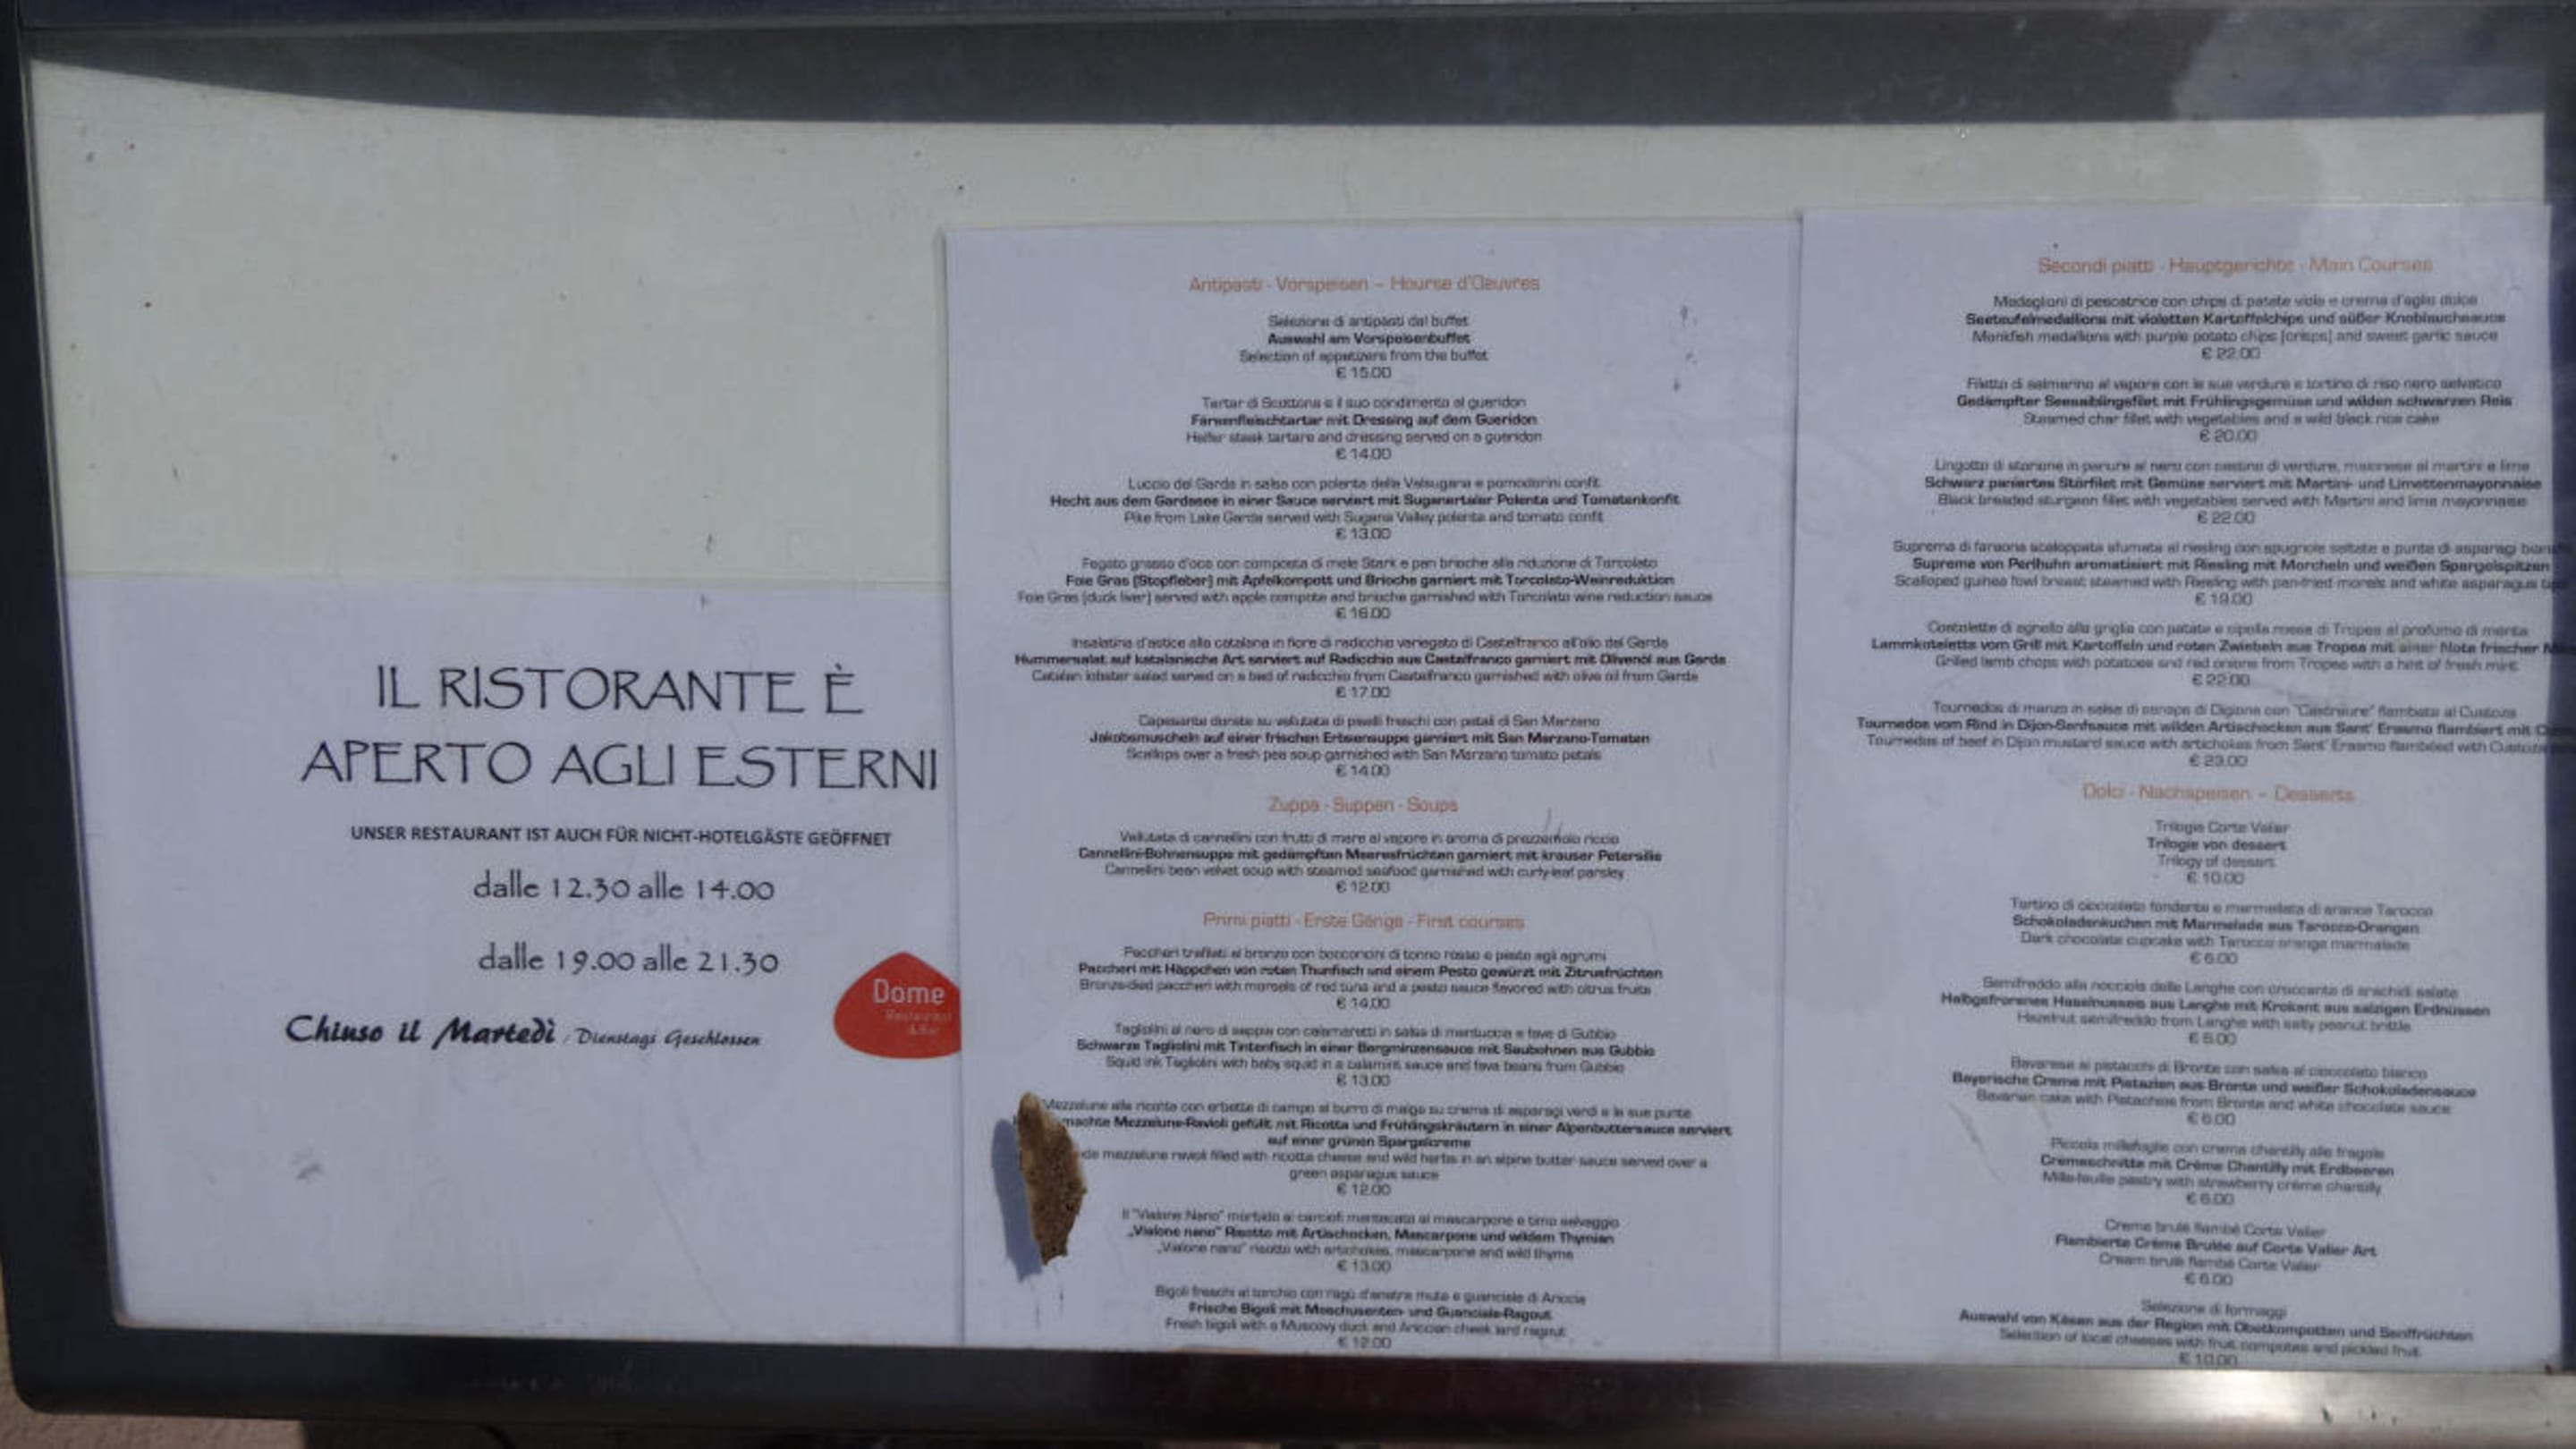 IL RISTORANTE È
APERTO AGLI ESTERNI
UNSER RESTAURANT IST AUCH FÜR NICHT-HOTELGÄSTE GEÖFFNET
dalle 12.30 alle 14.00
dalle 19.00 alle 21.30
Chiuso il Martedì / Dienstags Geschlossen
Dome
Restaurant
& Bar
Antipasti - Vorspeisen – Hourse d'Oeuvres
Selezione di antipasti dal buffet
Auswahl am Vorspeisenbuffet
Selection of appetizers from the buffet
€ 15.00
Tartar di Scottona e il suo condimento al gueridon
Färsenfleischtartar mit Dressing auf dem Gueridon
Heifer steak tartare and dressing served on a gueridon
€ 14.00
Luccio del Garda in salsa con polenta della Valsugana e pomodorini confit
Hecht aus dem Gardasee in einer Sauce serviert mit Suganertaler Polenta und Tomatenkonfit
Pike from Lake Garda served with Sugana Valley polenta and tomato confit
€ 13.00
Fegato grasso d'oca con composta di mele Stark e pan brioche alla riduzione di Torcolato
Foie Gras (Stopfleber) mit Apfelkompott und Brioche garniert mit Torcolato-Weinreduktion
Foie Gras (duck liver) served with apple compote and brioche garnished with Torcolato wine reduction sauce
€ 16.00
Insalatina d'astice alla catalana in fiore di radicchio variegato di Castelfranco all'olio del Garda
Hummersalat auf katalanische Art serviert auf Radicchio aus Castelfranco garniert mit Olivenöl aus Garda
Catalan lobster salad served on a bed of radicchio from Castelfranco garnished with olive oil from Garda
€ 17.00
Capesante dorate su vellutata di piselli freschi con petali di San Marzano
Jakobsmuscheln auf einer frischen Erbsensuppe garniert mit San Marzano-Tomaten
Scallops over a fresh pea soup garnished with San Marzano tomato petals
€ 14.00
Zuppa - Suppen - Soups
Vellutata di cannellini con frutti di mare al vapore in aroma di prezzemolo riccio
Cannellini-Bohnensuppe mit gedämpften Meeresfrüchten garniert mit krauser Petersilie
Cannellini bean velvet soup with steamed seafood garnished with curly-leaf parsley
€ 12.00
Primi piatti - Erste Gänge - First courses
Paccheri trafilati al bronzo con bocconcini di tonno rosso e pesto agli agrumi
Paccheri mit Häppchen von roten Thunfisch und einem Pesto gewürzt mit Zitrusfrüchten
Bronze-died paccheri with morsels of red tuna and a pesto sauce flavored with citrus fruits
€ 14.00
Tagliolini al nero di seppia con calamaretti in salsa di mentuccia e fave di Gubbio
Schwarze Tagliolini mit Tintenfisch in einer Bergminzensauce mit Saubohnen aus Gubbio
Squid ink Tagliolini with baby squid in a calamint sauce and fava beans from Gubbio
€ 13.00
Mezzelune alla ricotta con erbette di campo al burro di malga su crema di asparagi verdi e le sue punte
machte Mezzelune-Ravioli gefüllt mit Ricotta und Frühlingskräutern in einer Alpenbuttersauce serviert
auf einer grünen Spargelcreme
de mezzelune ravioli filled with ricotta cheese and wild herbs in an alpine butter sauce served over a
green asparagus sauce
€ 12.00
Il "Vialone Nano" morbido ai carciofi mantecato al mascarpone e timo selvaggio
„Vialone nano" Risotto mit Artischocken, Mascarpone und wildem Thymian
„Vialone nano" risotto with artichokes, mascarpone and wild thyme
€ 13.00
Bigoli freschi al torchio con ragù d'anatra muta e guanciale di Ariccia
Frische Bigoli mit Moschusenten- und Guanciale-Ragout
Fresh bigoli with a Muscovy duck and Ariccian cheek lard ragout
€ 12.00
Secondi piatti - Hauptgerichte - Main Courses
Medaglioni di pescatrice con chips di patate viola e crema d'aglio dolce
Seeteufelmedaillons mit violetten Kartoffelchips und süßer Knoblauchsauce
Monkfish medallions with purple potato chips (crisps) and sweet garlic sauce
€ 22.00
Filetto di salmerino al vapore con le sue verdure e tortino di riso nero selvatico
Gedämpfter Seesaiblingsfilet mit Frühlingsgemüse und wilden schwarzen Reis
Steamed char fillet with vegetables and a wild black rice cake
€ 20.00
Lingotto di storione in panure al nero con pastina di verdure, maionese al martini e lime
Schwarz paniertes Störfilet mit Gemüse serviert mit Martini- und Limettenmayonnaise
Black breaded sturgeon fillet with vegetables served with Martini and lime mayonnaise
€ 22.00
Suprema di faraona scaloppata sfumata al riesling con spugnole saltate e punte di asparagi bian
Supreme von Perlhuhn aromatisiert mit Riesling mit Morcheln und weißen Spargelspitzen
Scalloped guinea fowl breast steamed with Riesling with pan-fried morels and white asparagus tip
€ 19.00
Costolette di agnello alla griglia con patate e cipolla rossa di Tropea al profumo di menta
Lammkoteletts vom Grill mit Kartoffeln und roten Zwiebeln aus Tropea mit einer Note frischer M
Grilled lamb chops with potatoes and red onions from Tropea with a hint of fresh mint
€ 22.00
Tournedos di manzo in salsa di senape di Digione con "Castraure" flambata al Custoza
Tournedos vom Rind in Dijon-Senfsauce mit wilden Artischocken aus Sant' Erasmo flambiert mit C
Tournedos of beef in Dijon mustard sauce with artichokes from Sant' Erasmo flambéed with Custoza
€ 23.00
Dolci - Nachspeisen – Desserts
Trilogia Corte Valier
Trilogie von dessert
Trilogy of dessert
€ 10.00
Tortino di cioccolato fondente e marmellata di arance Tarocco
Schokoladenkuchen mit Marmelade aus Tarocco-Orangen
Dark chocolate cupcake with Tarocco orange marmalade
€ 6.00
Semifreddo alla nocciola delle Langhe con croccante di arachidi salate
Halbgefrorenes Haselnusseis aus Langhe mit Krokant aus salzigen Erdnüssen
Hazelnut semifreddo from Langhe with salty peanut brittle
€ 5.00
Bavarese ai pistacchi di Bronte con salsa al cioccolato bianco
Bayerische Creme mit Pistazien aus Bronte und weißer Schokoladensauce
Bavarian cake with Pistachios from Bronte and white chocolate sauce
€ 6.00
Piccola millefoglie con crema chantilly alle fragole
Cremeschnitte mit Crème Chantilly mit Erdbeeren
Mille-feuille pastry with strawberry crème chantilly
€ 6.00
Creme brulé flambé Corte Valier
Flambierte Crème Brulée auf Corte Valier Art
Cream brulé flambé Corte Valier
€ 6.00
Selezione di formaggi
Auswahl von Käsen aus der Region mit Obstkompotten und Senffrüchten
Selection of local cheeses with fruit compotes and pickled fruit
€ 10.00